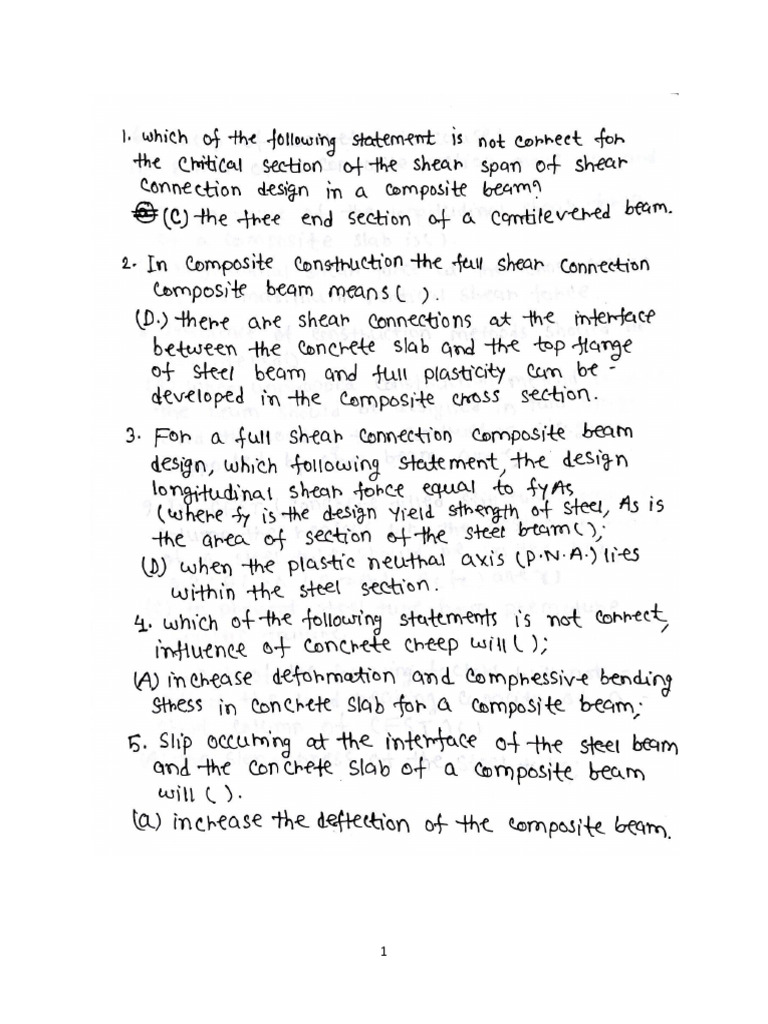 1. which of the following statement is not correct for
the critical section of the shear span of shear
connection design in a composite beam?
(C) the free end section of a cantilevered beam.
2. In composite construction the full shear connection
composite beam means( ).
(D.) there are shear connections at the interface
between the concrete slab and the top flange
of steel beam and full plasticity can be -
developed in the composite cross section.
3. For a full shear connection composite beam
design, which following statement, the design
longitudinal shear force equal to fyAs
(where fy is the design yield strength of steel, As is
the area of section of the steel beam( );
(D) when the plastic neuthal axis (P.N.A.) lies
within the steel section.
4. which of the following statements is not correct,
influence of concrete creep will( );
(A) increase deformation and compressive bending
stress in concrete slab for a composite beam;
5. Slip occuring at the interface of the steel beam
and the concrete slab of a composite beam
will ( ).
(a) increase the deflection of the composite beam.
1